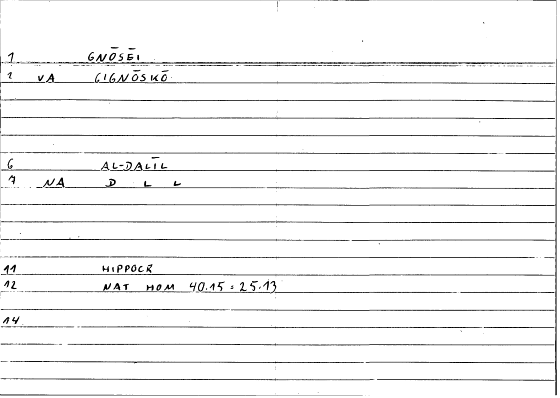 1 GNŌSĒI
2 VA GIGNŌSKŌ
6 AL-DALĪL
7 NA D L L
11 HIPPOCR
12 NAT HOM 40.15 = 25.13
14